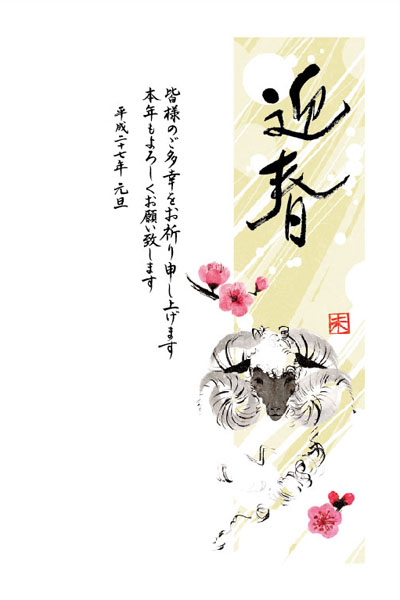 迎春
未
皆様のご多幸をお祈り申し上げます
本年もよろしくお願い致します
平成二十七年 元旦